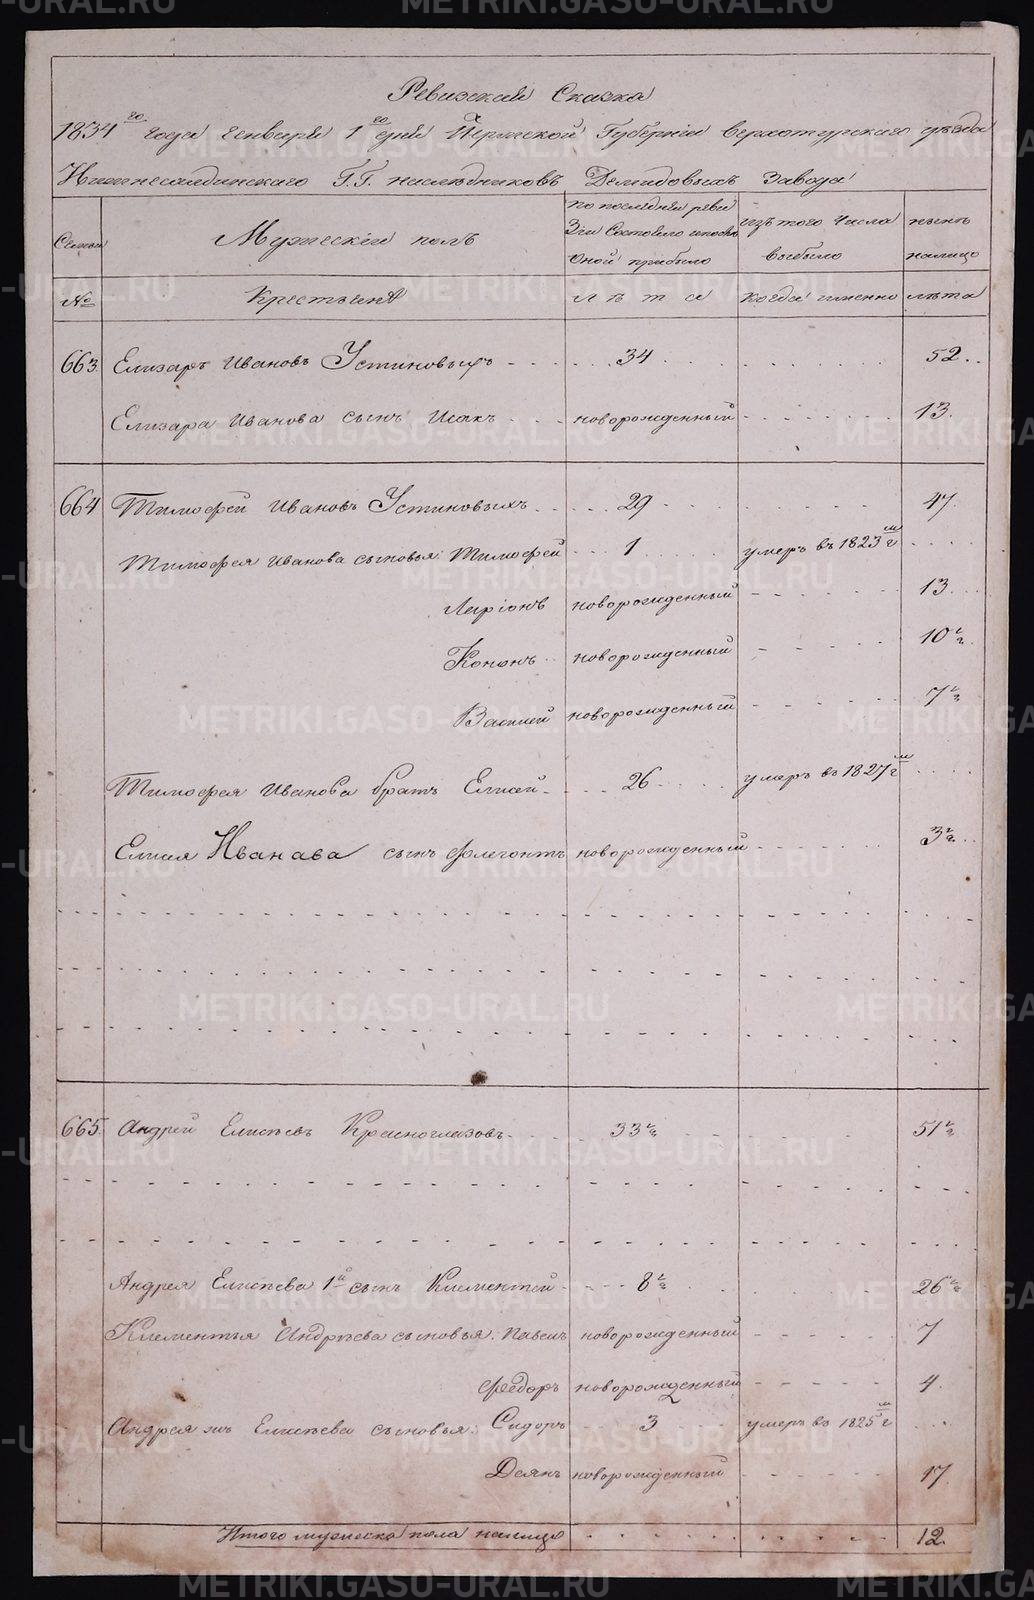 Ревизская Сказка
1834го года Генваря 1го дня Пермской Губернии Верхотурского уезда
Нижнесалдинскаго Г.Г. наследниковъ Демидовыхъ Завода
Семьи Мужескій полъ по последней реви зіи Состояло и после оной прибыло изъ того Числа выбыло ныне налицо
№ Крестьяне лѣта когда именно лѣта
663 Елизаръ Ивановъ Устиновыхъ 34 52
Елизара Иванова сынъ Исакъ новорожденный 13
664 Тимофей Ивановъ Устиновыхъ 29 47
Тимофея Иванова сыновья: Тимофей 1 умеръ въ 1823 м г
Ларіонъ новорожденный 13
Кононъ новорожденный 10 ½
Василей новорожденный 7 ½
Тимофея Иванова братъ Елисей 26 умеръ въ 1827 м г
Елисея Иванава сынъ Флегонтъ новорожденный 3 ½
665 Андрей Елисѣевъ Красноглазовъ 33 ½ 51 ½
Андрея Елисѣева 1й сынъ Клементей 8 ½ 26 ½
Клементья Андрѣева сыновья: Павелъ новорожденный 7
Федоръ новорожденный 4
Андрея жъ Елисѣева сыновья: Сидоръ 3 умеръ въ 1825 м г
Деянъ новорожденный 17
Итого мужеска пола налицо 12
METRIKI.GASO-URAL.RU